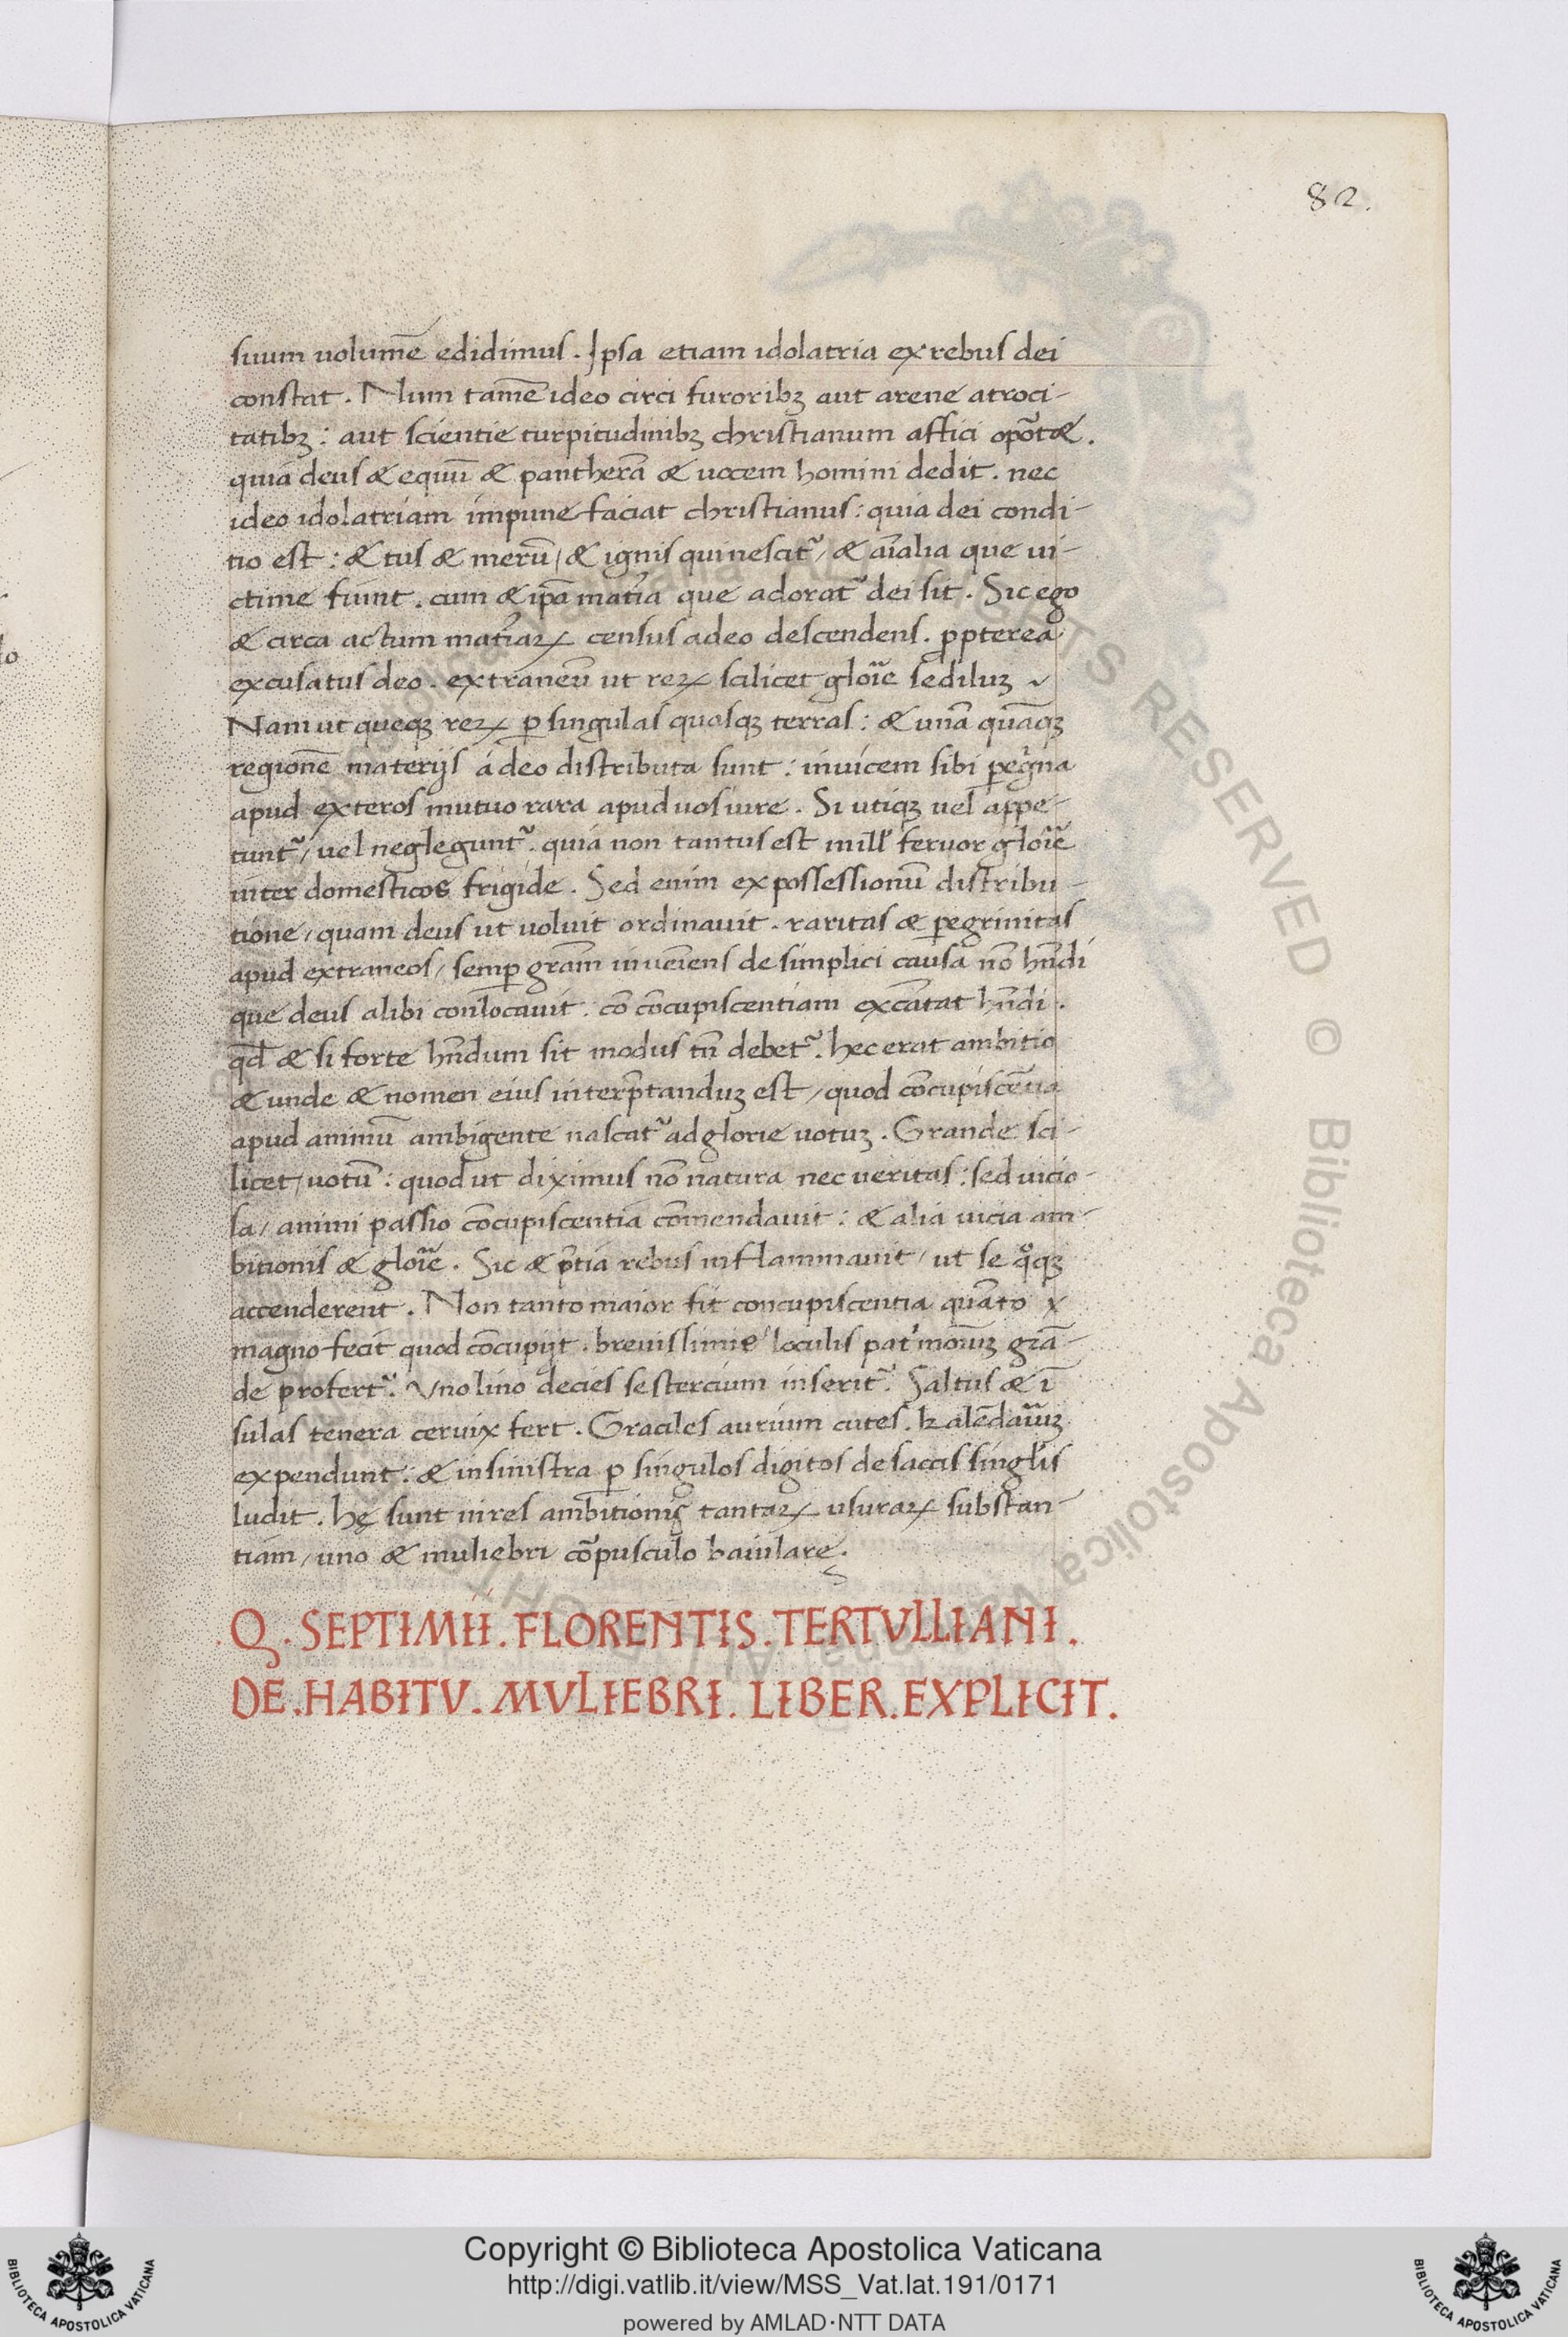 82.
suum uolumē edidimus. Ipsa etiam idolatria ex rebus dei
constat. Num tamē ideo circi furoribꝫ aut arene atroci-
tatibꝫ: aut scientie turpitudinibꝫ christianum affici opōt&.
quia deus & equū & pantherā & uocem homini dedit. nec
ideo idolatriam impune faciat christianus: quia dei condi-
tio est: & tus & merū/ & ignis qui nescit᷑/ & aīalia que ui-
ctime fiunt. cum & ip̄a mat̄ia que adorat᷑ dei sit. Sic ego
& circa actum mat̄iaꝝ census a deo descendens. ꝓpterea
excusatus deo. extraneū ut reꝝ scilicet gloīe sediluꝫ
Nam ut queqꝫ reꝝ ꝑ singulas quasqꝫ terras: & unā quāqꝫ
regionē materijs a deo distributa sunt: inuicem sibi ꝑegͥna
apud exteros mutuo rara apud uos iure. Si utiqꝫ uel appe-
tunt᷑/ uel neglegunt᷑. quia non tantus est mill' feruor gloīe
inter domesticos frigide. Sed enim ex possessionū distribu-
tione/ quam deus ut uoluit ordinauit. raritas & ꝑegrinitas
apud extraneos/ semꝑ grām inueīens de simplici causa nō hn̄di
que deus alibi conlocauit. cō cōcupiscentiam excātat hn̄di.
qd̄ & si forte hn̄dum sit modus tn̄ debet᷑. hec erat ambitio
& unde & nomen eius interp̄tanduꝫ est/ quod cōcupiscētia
apud animū ambigente nascat᷑ ad glorie uotuꝫ. Grande sci-
licet/ uotū: quod ut diximus nō natura nec ueritas: sed uicio-
sa/ animi passio cōcupiscentia cōmendauit: & alia uicia am-
bitionis & gloīe. Sic & p̄tia rebus inflammauit/ ut se qͦqꝫ
accenderent. Non tanto maior fit concupiscentia quāto
magno fecit quod cōcupijt. breuissimis loculis patͥmōiuꝫ grā-
de profert᷑. Vno lino decies sestercium inserit᷑. Saltus & ī
sulas tenera ceruix fert. Graciles aurium cutes. kalēdaīuꝫ
expendunt: & in sinistra ꝑ singulos digitos de saccis singl'is
ludit. hę sunt uires ambitionis tantaꝝ usuraꝝ substan-
tiam/ uno & muliebri cōpusculo baiulare.
Q. SEPTIMII. FLORENTIS. TERTVLLIANI.
DE. HABITV. MVLIEBRI. LIBER. EXPLICIT.
© Biblioteca Apostolica Vaticana ALL RIGHTS RESERVED
Copyright © Biblioteca Apostolica Vaticana
http://digi.vatlib.it/view/MSS_Vat.lat.191/0171
powered by AMLAD·NTT DATA
BIBLIOTECA APOSTOLICA VATICANA
BIBLIOTECA APOSTOLICA VATICANA